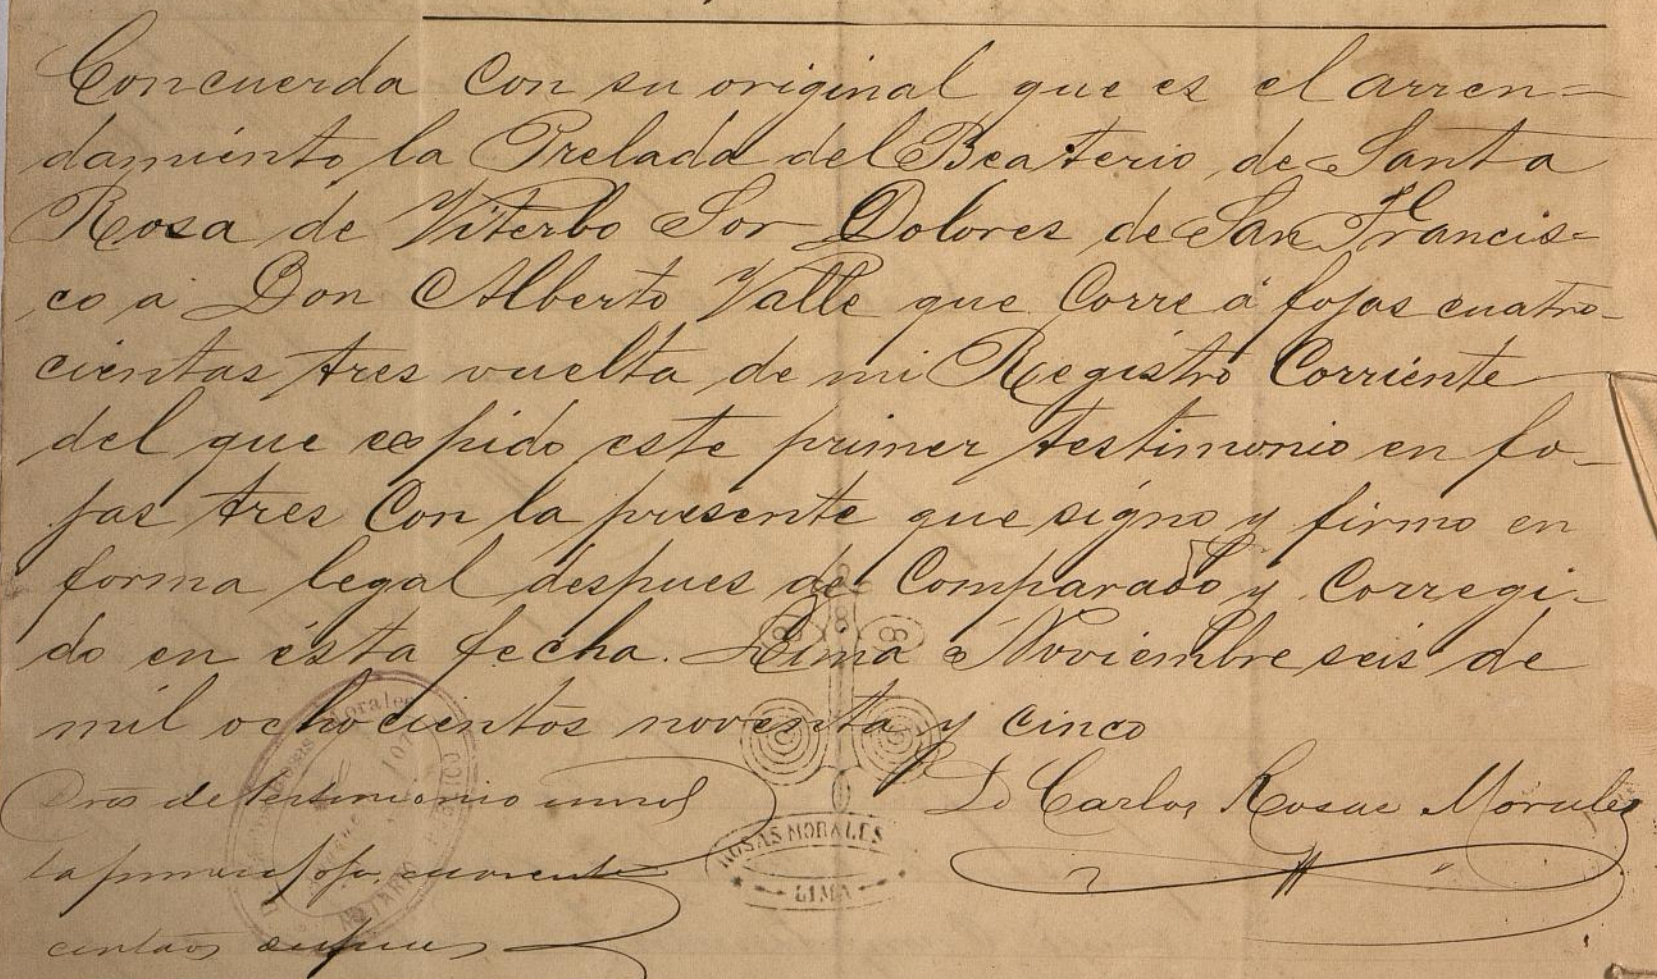 Concuerda con su original que es el arren=
damiento la Prelada del Beaterio de Santa
Rosa de Viterbo Sor Dolores de San Francis=
co a Don Alberto Valle que Corre á fojas cuatro-
cientas tres vuelta de mi Registro Corriente
del que expido este primer testimonio en fo-
jas tres Con la presente que signo y firmo en
forma legal despues de Comparado y Corregi-
do en ésta fecha. Lima Noviembre seis de
mil ochocientos noventa y cinco
Dros de testimonio un sol
Do Carlos Rosas Morales
la primera foja, cuarenta
centavos
ROSAS MORALES
LIMA